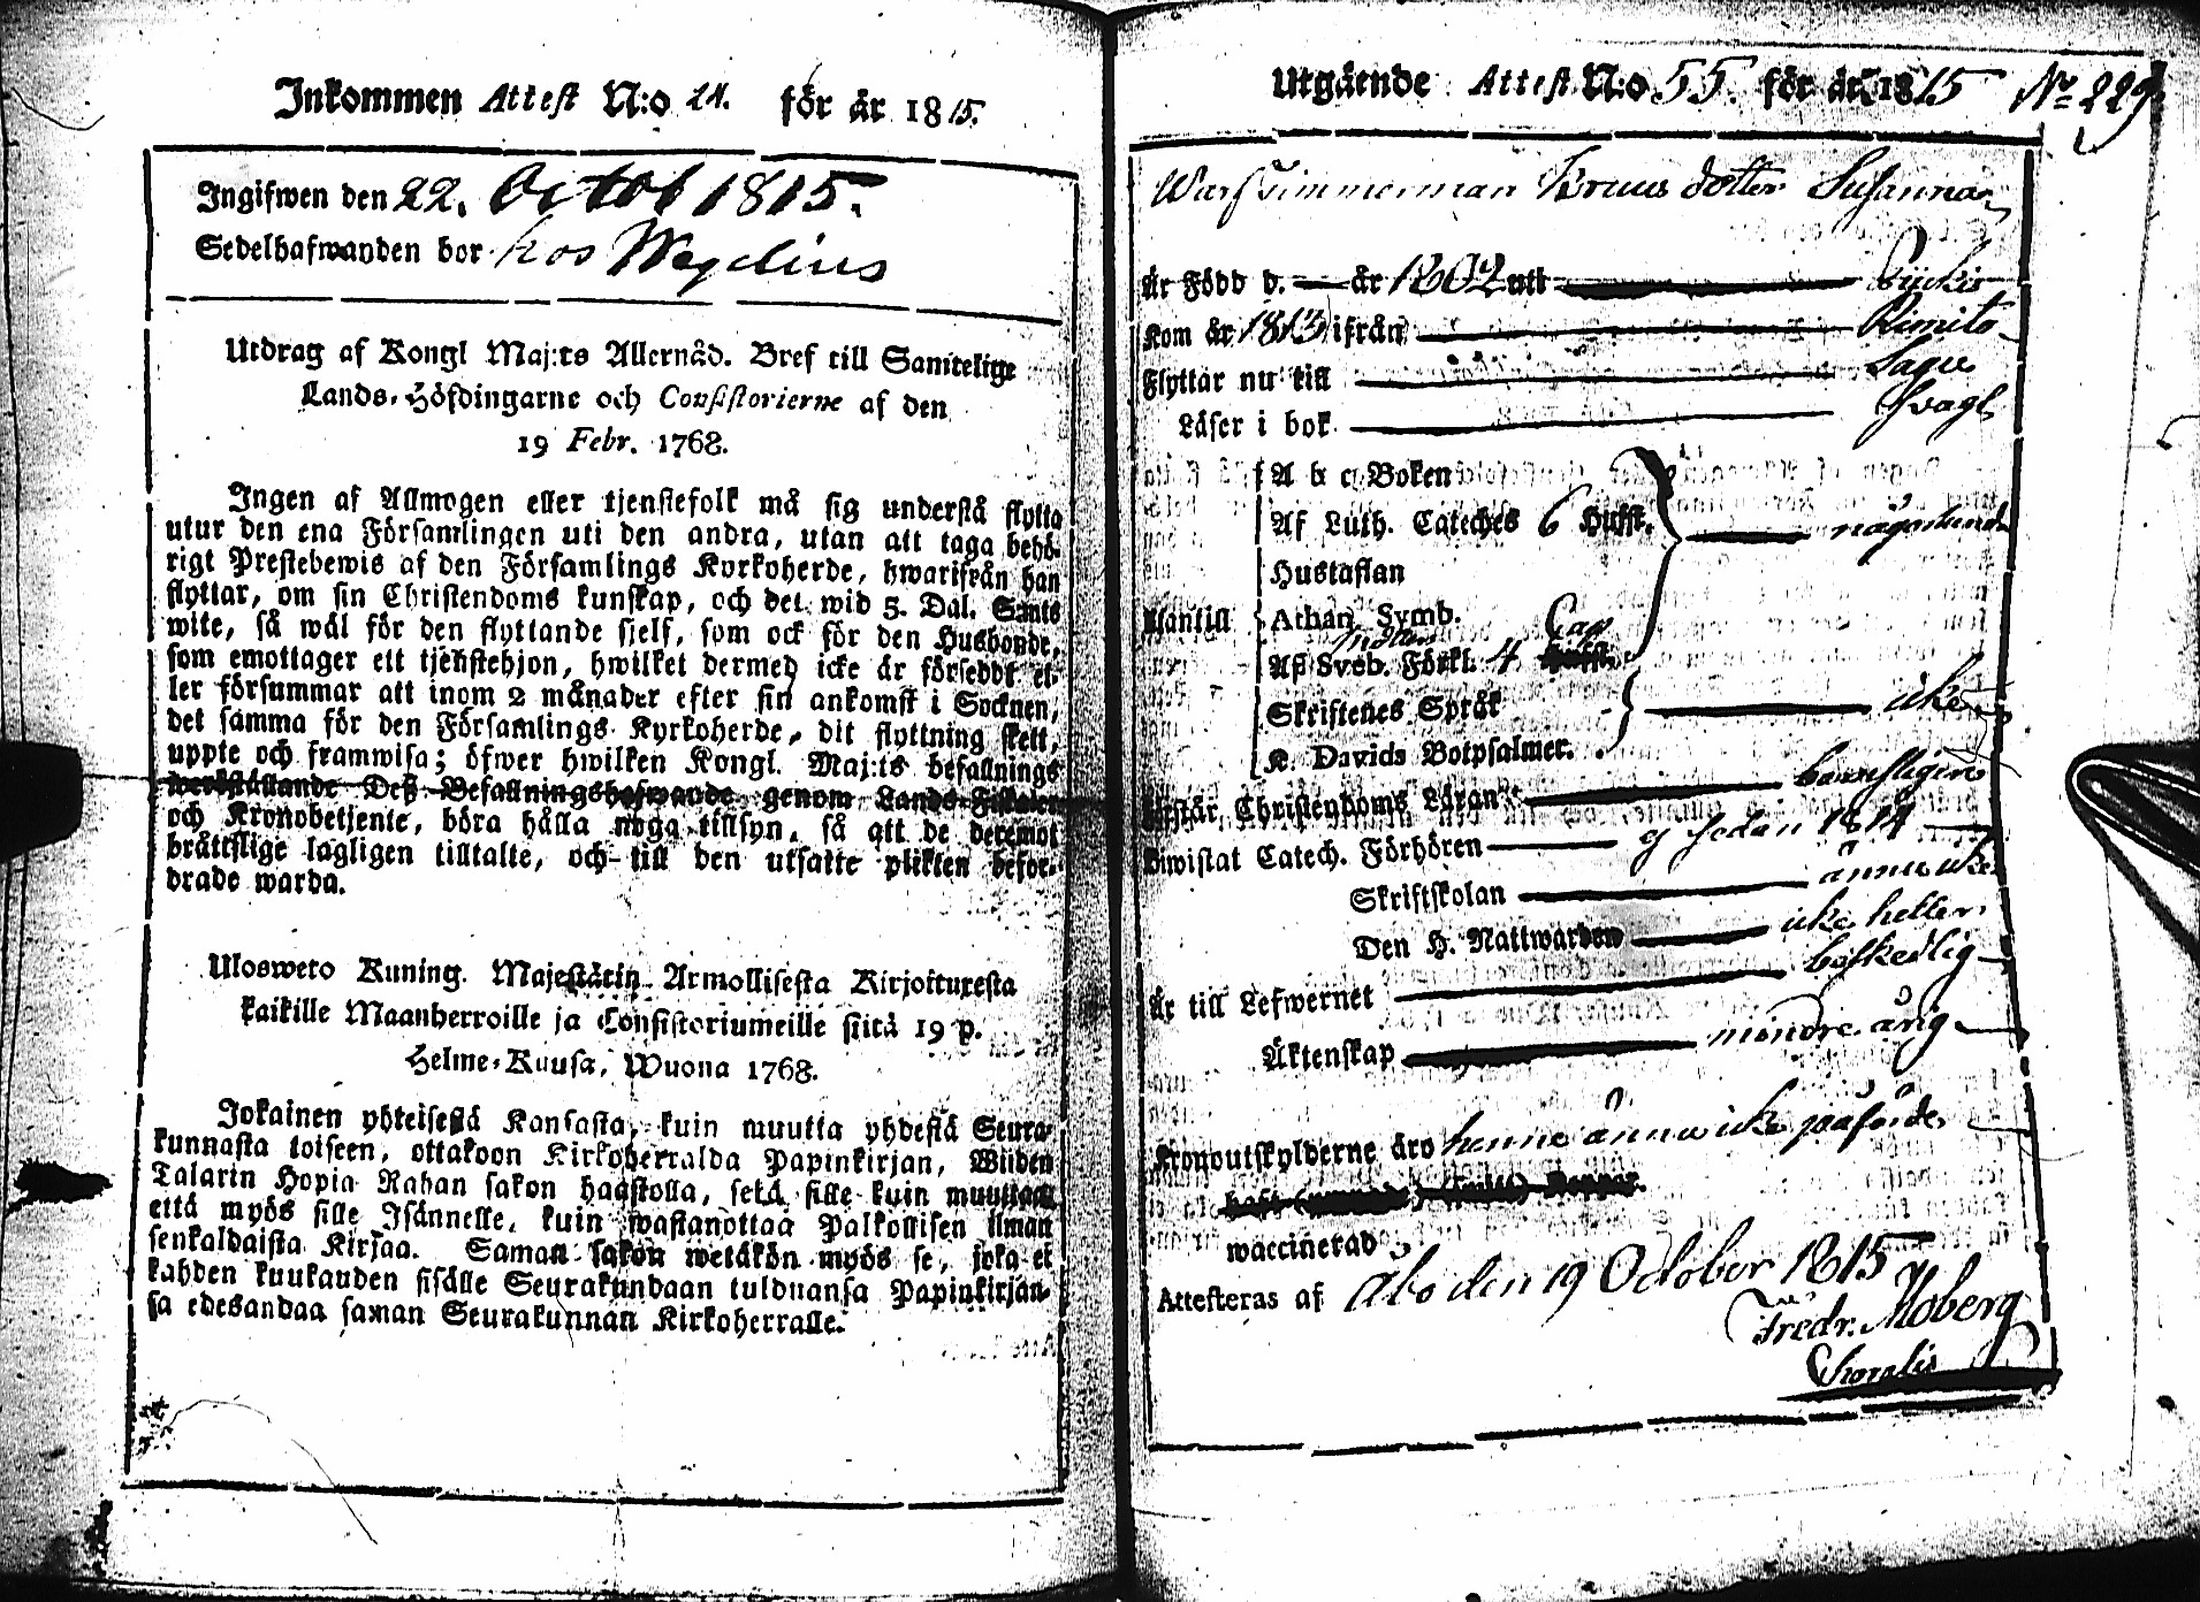 Inkommen Attest N:o 21. för år 1815.
Ingifwen den 22. Octob 1815.
Sedelhafwanden bor hos Wegelius
Utdrag af Kongl Maj:ts Allernåd. Bref till Samtelige
Lands-Höfdingarne och Consistorierne af den
19 Febr. 1768.
Ingen af Allmogen eller tjenstefolk må sig understå flytta
utur den ena Församlingen uti den andra, utan att taga behö-
rigt Prestebewis af den Församlings Kyrkoherde, hwarifrån han
flyttar, om sin Christendoms kunskap, och det wid 5. Dal. S:mts
wite, så wäl för den flyttande sjelf, som ock för den Husbonde,
som emottager ett tjenstehjon, hwilket dermed icke är förseddt el-
ler försummar att inom 2 månader efter sin ankomst i Socknen,
det samma för den Församlings Kyrkoherde, dit flyttning skett,
uppte och framwisa; öfwer hwilken Kongl. Maj:ts befallnings
werkställande Deß Befallningshafwande genom Lands-Fiskaler
och Kronobetjente, böra hålla noga tillsyn, så att de deremot
bråttslige lagligen tilltalte, och till den utsatte plikten befor-
drade warda.
Ulosweto Kuning. Majestätin Armollisesta Kirjoituxesta
kaikille Maanherroille ja Consistoriumeille siitä 19 p.
Helme-Kuusa, Wuona 1768.
Jokainen yhteisestä Kansasta, kuin muutta yhdestä Seura-
kunnasta toiseen, ottakoon Kirkoherralda Papinkirjan, Wiiden
Talarin Hopia Rahan sakon haastolla, sekä sille kuin muuttaa
että myös sille Isännelle, kuin wastanottaa Palkollisen ilman
senkaldaista Kirjaa. Saman sakon wetäkön myös se, joka ei
kahden kuukauden sisälle Seurakundaan tulduansa Papinkirjan-
sa edesandaa saman Seurakunnan Kirkoherralle.
Utgående Attest N:o 55. för år 1815 No 229
Warfstimmerman Kruus dotter Susanna
Är Född d. — år 1802 utt
Kom år 1813 ifrån Rimito
Flyttar nu till Sagu
Läser i bok Svagt
A b c Boken
Af Luth. Cateches 6 Hufst. någorlunda
Hustaflan
Utantill Athan. Symb.
Af Sveb. Förkl. 4 Cap
Skriftenes Språk icke
K. Davids Botpsalmer.
Förstår Christendoms Läran
Biwistat Catech. Förhören ej sedan 1814
Skriftskolan ännu icke
Den H. Nattwarden icke heller
Är till Lefwernet beskedlig
Äktenskap mindre årig
Kronoutskylderne äro henne ännu icke påförde
waccinerad
Attesteras af Åbo den 19 October 1815
Fredr. Moberg